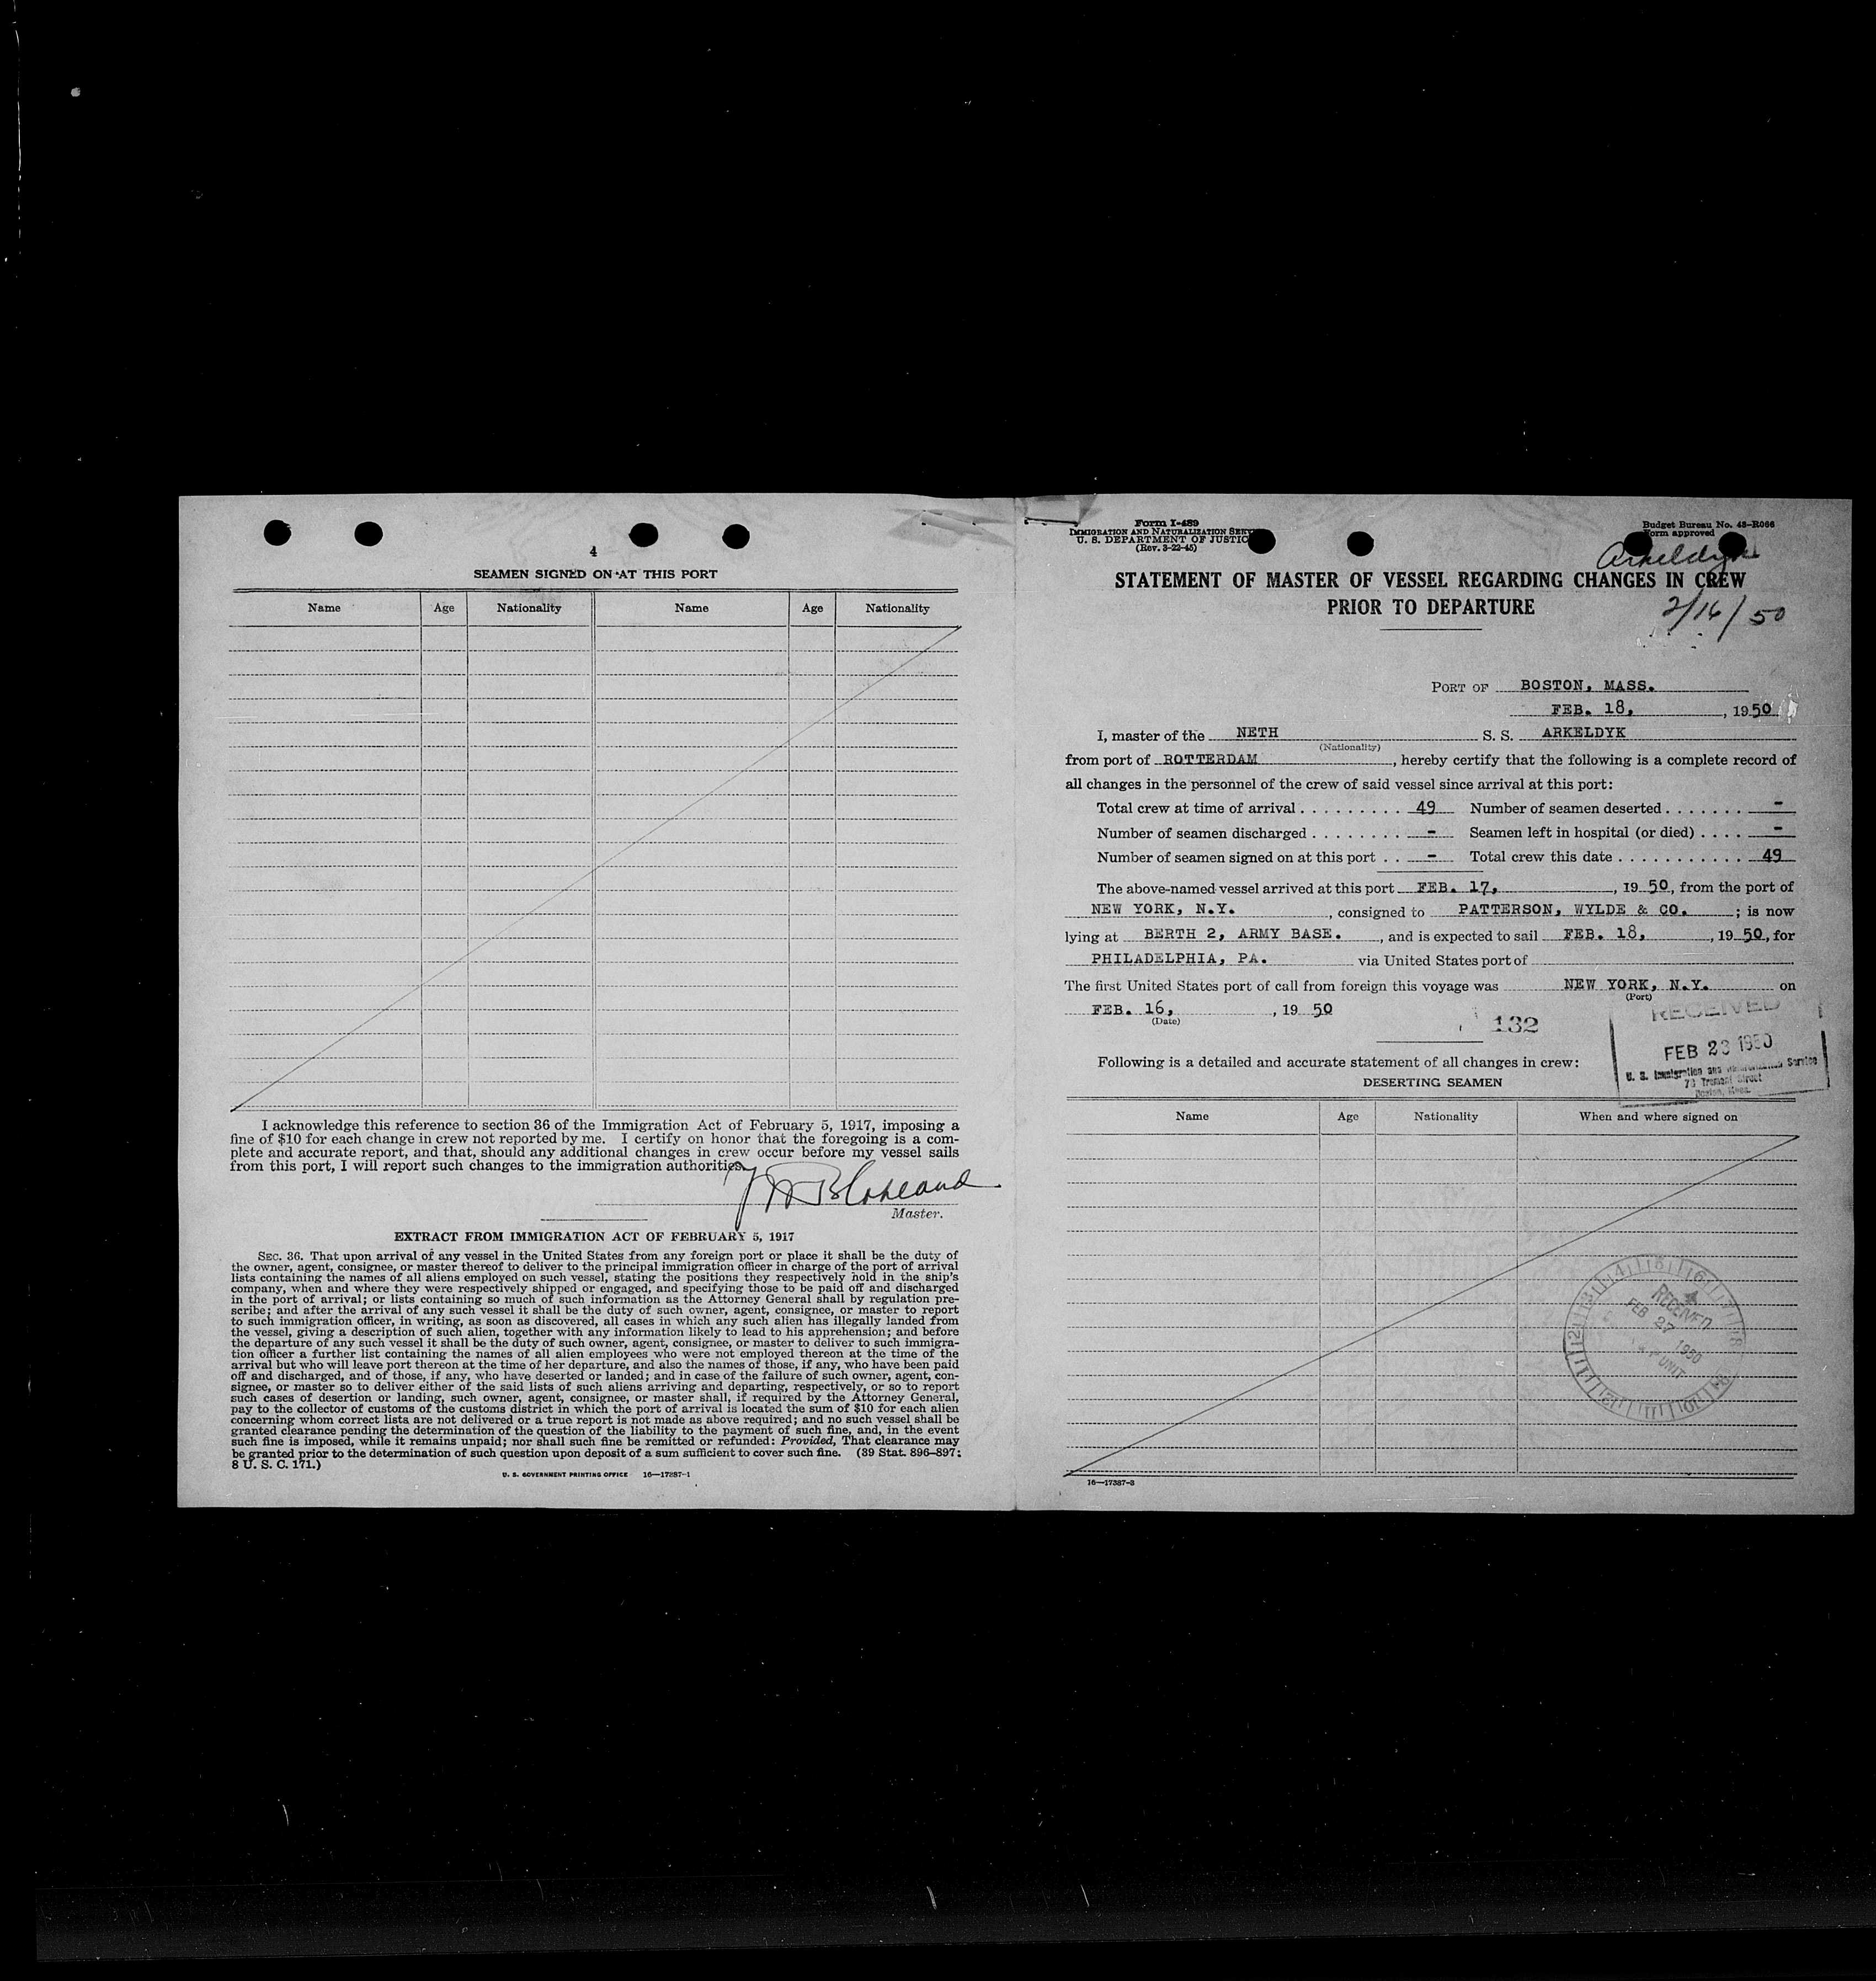 4
SEAMEN SIGNED ON AT THIS PORT
Name Age Nationality Name Age Nationality
I acknowledge this reference to section 36 of the Immigration Act of February 5, 1917, imposing a
fine of $10 for each change in crew not reported by me. I certify on honor that the foregoing is a com-
plete and accurate report, and that, should any additional changes in crew occur before my vessel sails
from this port, I will report such changes to the immigration authorities.
Master.
EXTRACT FROM IMMIGRATION ACT OF FEBRUARY 5, 1917
SEC. 36. That upon arrival of any vessel in the United States from any foreign port or place it shall be the duty of
the owner, agent, consignee, or master thereof to deliver to the principal immigration officer in charge of the port of arrival
lists containing the names of all aliens employed on such vessel, stating the positions they respectively hold in the ship's
company, when and where they were respectively shipped or engaged, and specifying those to be paid off and discharged
in the port of arrival; or lists containing so much of such information as the Attorney General shall by regulation pre-
scribe; and after the arrival of any such vessel it shall be the duty of such owner, agent, consignee, or master to report
to such immigration officer, in writing, as soon as discovered, all cases in which any such alien has illegally landed from
the vessel, giving a description of such alien, together with any information likely to lead to his apprehension; and before
the departure of any such vessel it shall be the duty of such owner, agent, consignee, or master to deliver to such immigra-
tion officer a further list containing the names of all alien employees who were not employed thereon at the time of the
arrival but who will leave port thereon at the time of her departure, and also the names of those, if any, who have been paid
off and discharged, and of those, if any, who have deserted or landed; and in case of the failure of such owner, agent, con-
signee, or master so to deliver either of the said lists of such aliens arriving and departing, respectively, or so to report
such cases of desertion or landing, such owner, agent, consignee, or master shall, if required by the Attorney General,
pay to the collector of customs of the customs district in which the port of arrival is located the sum of $10 for each alien
concerning whom correct lists are not delivered or a true report is not made as above required; and no such vessel shall be
granted clearance pending the determination of the question of the liability to the payment of such fine, and, in the event
such fine is imposed, while it remains unpaid; nor shall such fine be remitted or refunded: Provided, That clearance may
be granted prior to the determination of such question upon deposit of a sum sufficient to cover such fine. (39 Stat. 896–897;
8 U. S. C. 171.)
U. S. GOVERNMENT PRINTING OFFICE 16—17387-1
Form I-489
IMMIGRATION AND NATURALIZATION
U. S. DEPARTMENT OF JUSTIC
(Rev. 3-22-45)
Budget Bureau No. 43–R066
Form approved
Arkeldyk
STATEMENT OF MASTER OF VESSEL REGARDING CHANGES IN CREW
PRIOR TO DEPARTURE
2/16/50
PORT OF BOSTON, MASS.
FEB. 18, , 1950
I, master of the NETH S. S. ARKELDYK
(Nationality)
from port of ROTTERDAM , hereby certify that the following is a complete record of
all changes in the personnel of the crew of said vessel since arrival at this port:
Total crew at time of arrival . . . . . . . . . . 49 Number of seamen deserted . . . . . . . -
Number of seamen discharged . . . . . . . . - Seamen left in hospital (or died) . . . . -
Number of seamen signed on at this port . . - Total crew this date . . . . . . . . . . . 49
The above-named vessel arrived at this port FEB. 17, , 19 50, from the port of
NEW YORK, N.Y. , consigned to PATTERSON, WYLDE & CO. ; is now
lying at BERTH 2, ARMY BASE. , and is expected to sail FEB. 18, , 19 50, for
PHILADELPHIA, PA. via United States port of
The first United States port of call from foreign this voyage was NEW YORK, N.Y. on
(Port)
FEB. 16, , 19 50
(Date)
132
RECEIVED
FEB 23 1950
U. S. Immigration and Service
73 Tremont Street
Boston, Mass.
Following is a detailed and accurate statement of all changes in crew:
DESERTING SEAMEN
Name Age Nationality When and where signed on
RECEIVED
FEB 27 1950
UNIT
16—17387-3